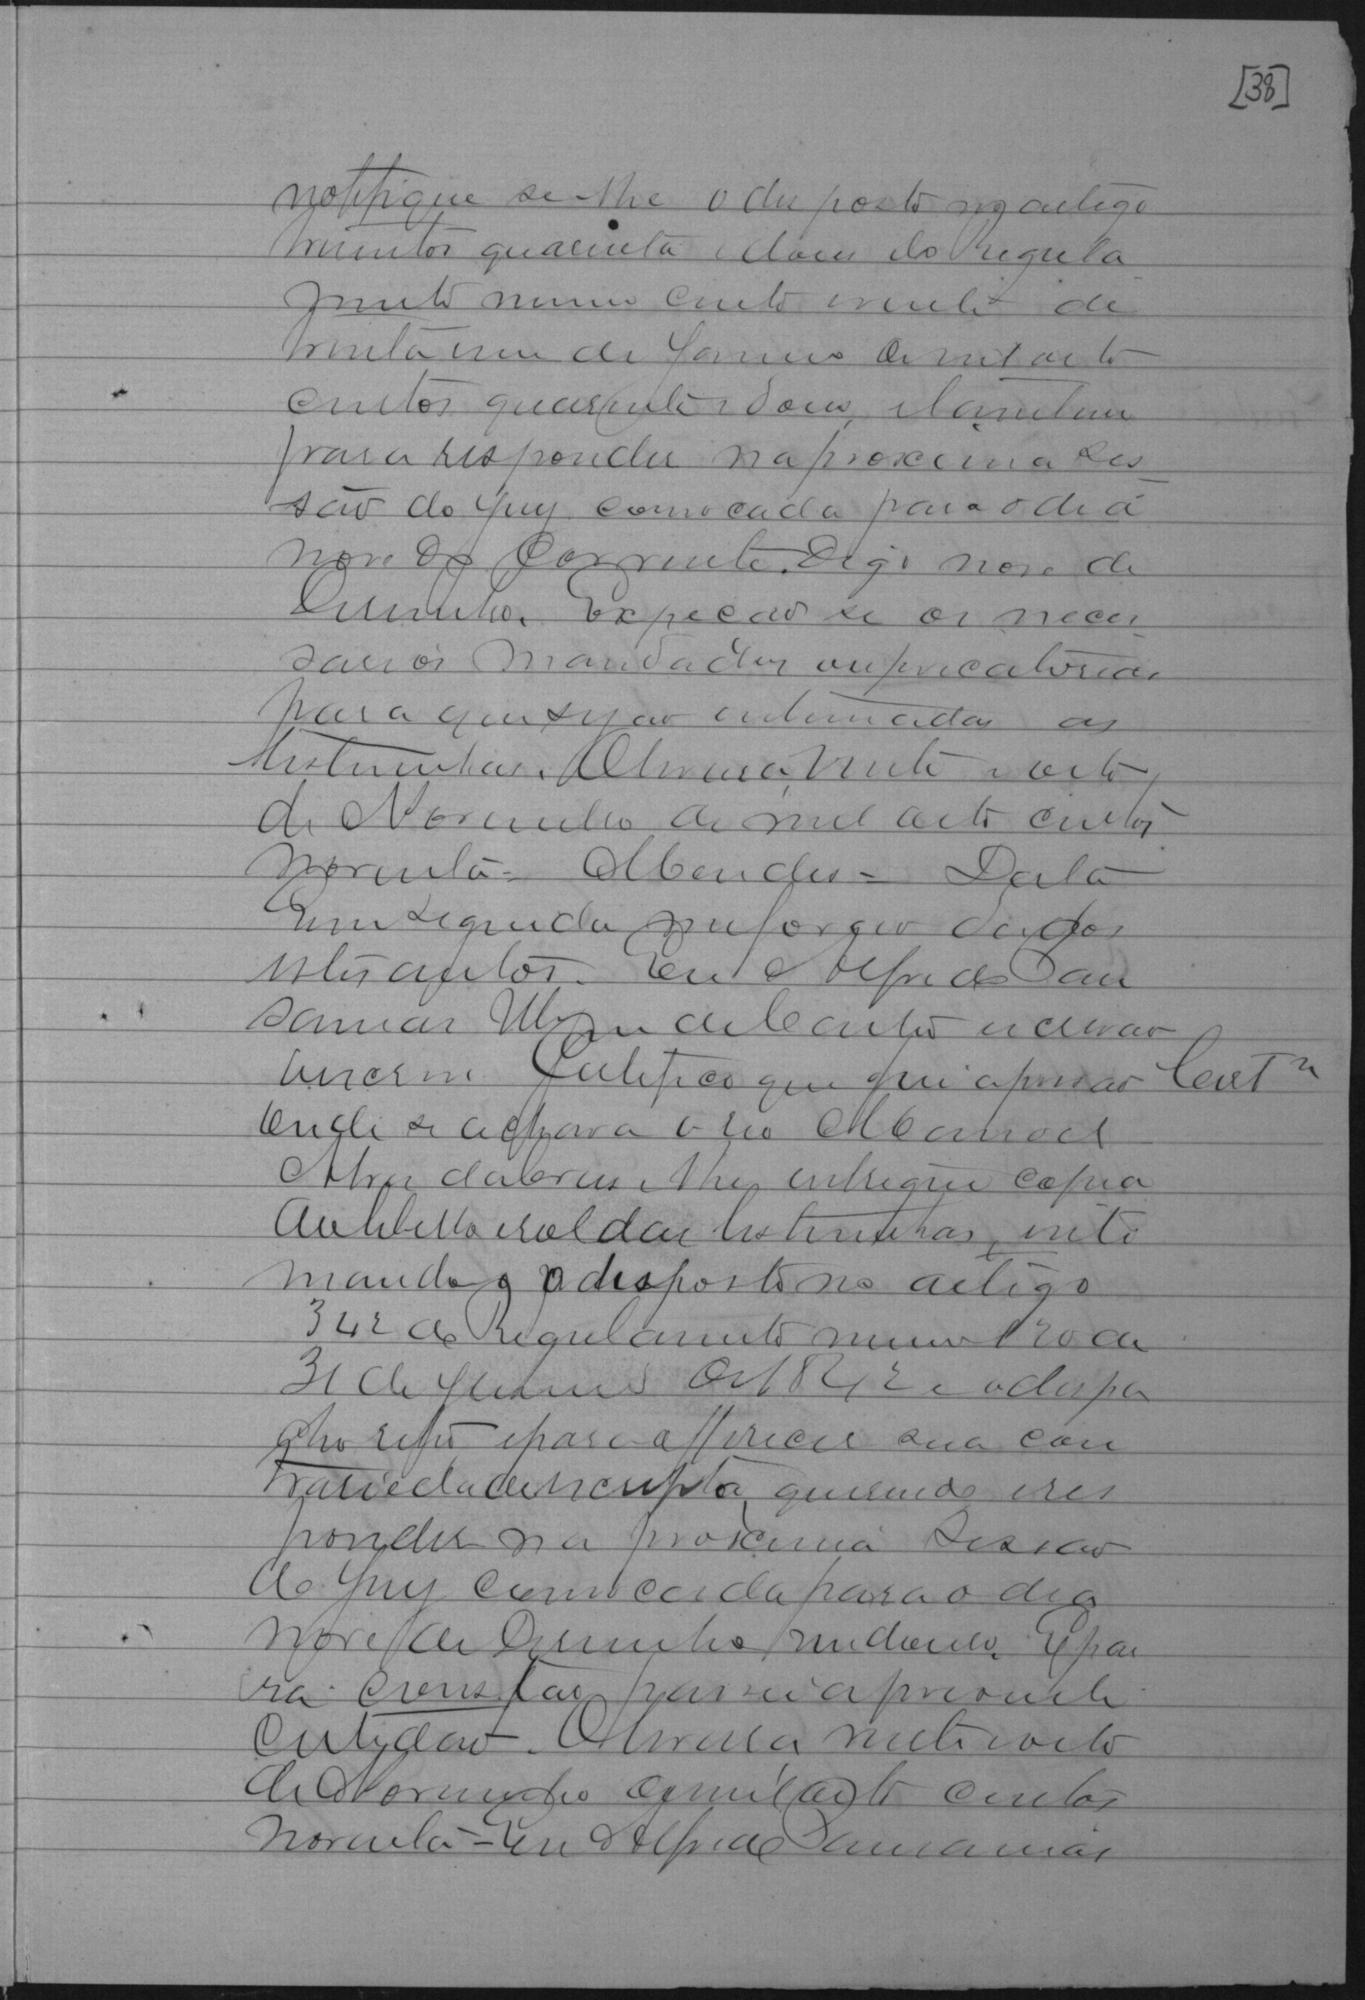 [38]
notifique se-lhe o disposto no artigo
trezentos quarenta e dous do Regula
mento numero cento e vinte de
trinta e um de Janeiro de mil oito
centos quarenta e dous, e tambem
para responder na proxima ses
são do Jury convocada para o dia
nove do Corrente. Digo nove de
Dezembro. Expeção se os neces
sarios mandados ou precatorias
para que sejão intimadas as
testemunhas. vinte e oito
de Novembro de mil oito centos
noventa = Mendes = Data
Em seguida me forão dados
estes autos. Eu Alfredo
de Castro escrivão
escrevi Certifico que fui a prisão Cert.m
onde se achava o réo Manoel
Alves da Cruz e lhe entreguei copia
do libello e rol das testemunhas, inti
mando o disposto no artigo
342 do Regulamento numero 120 de
31 de Janeiro de 1842 e o despa
cho retro e para offerecer sua con
trariedade escripta, querendo e res
ponder na proxima Sessão
do Jury convocada para o dia
nove de Dezembro Epa
ra constar passei a presente
certidão. vinte e oito
de Novembro de mil oito centos
noventa = Eu Alfredo